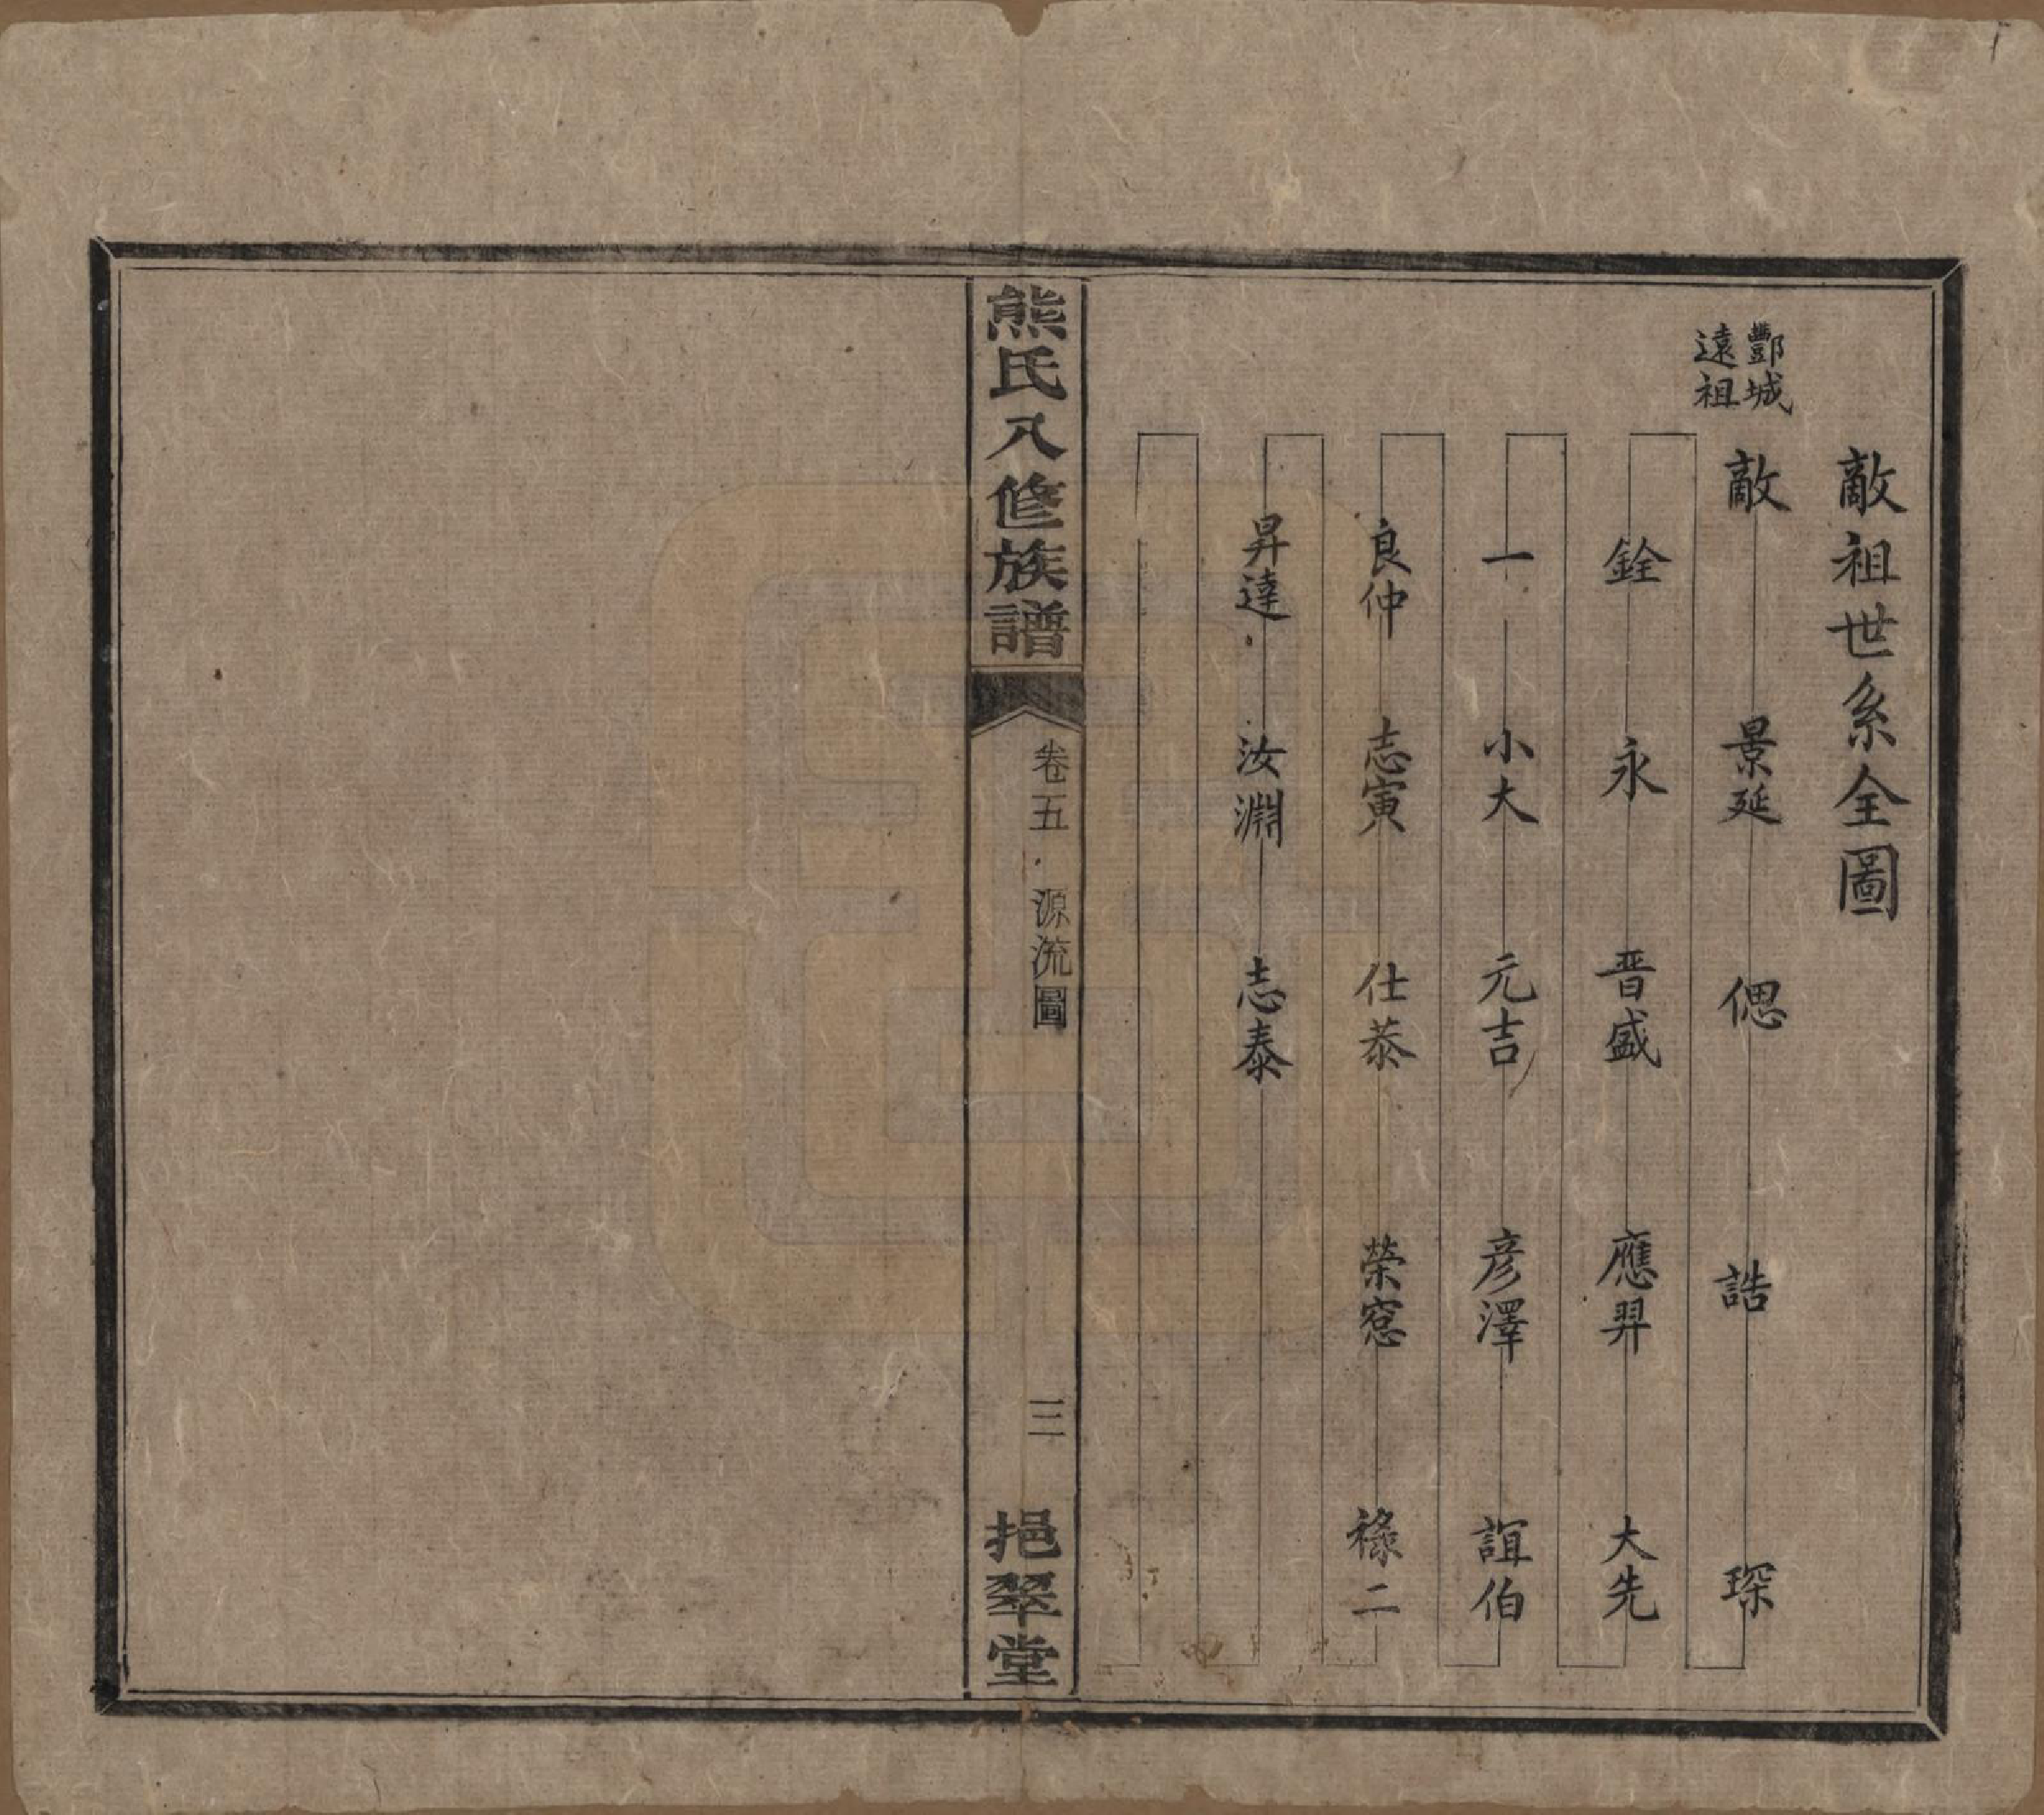 敵祖世系全圖
酆城
遠祖
敵 景延 偲 誥 琛
銓 永 晋盛 應羿 大先
一 小大 元吉 彦澤 誼伯
良仲 志寅 仕恭 榮窓 祿二
昇達 汝淵 志泰
熊氏八修族譜
卷五 源流圖
三
挹翠堂